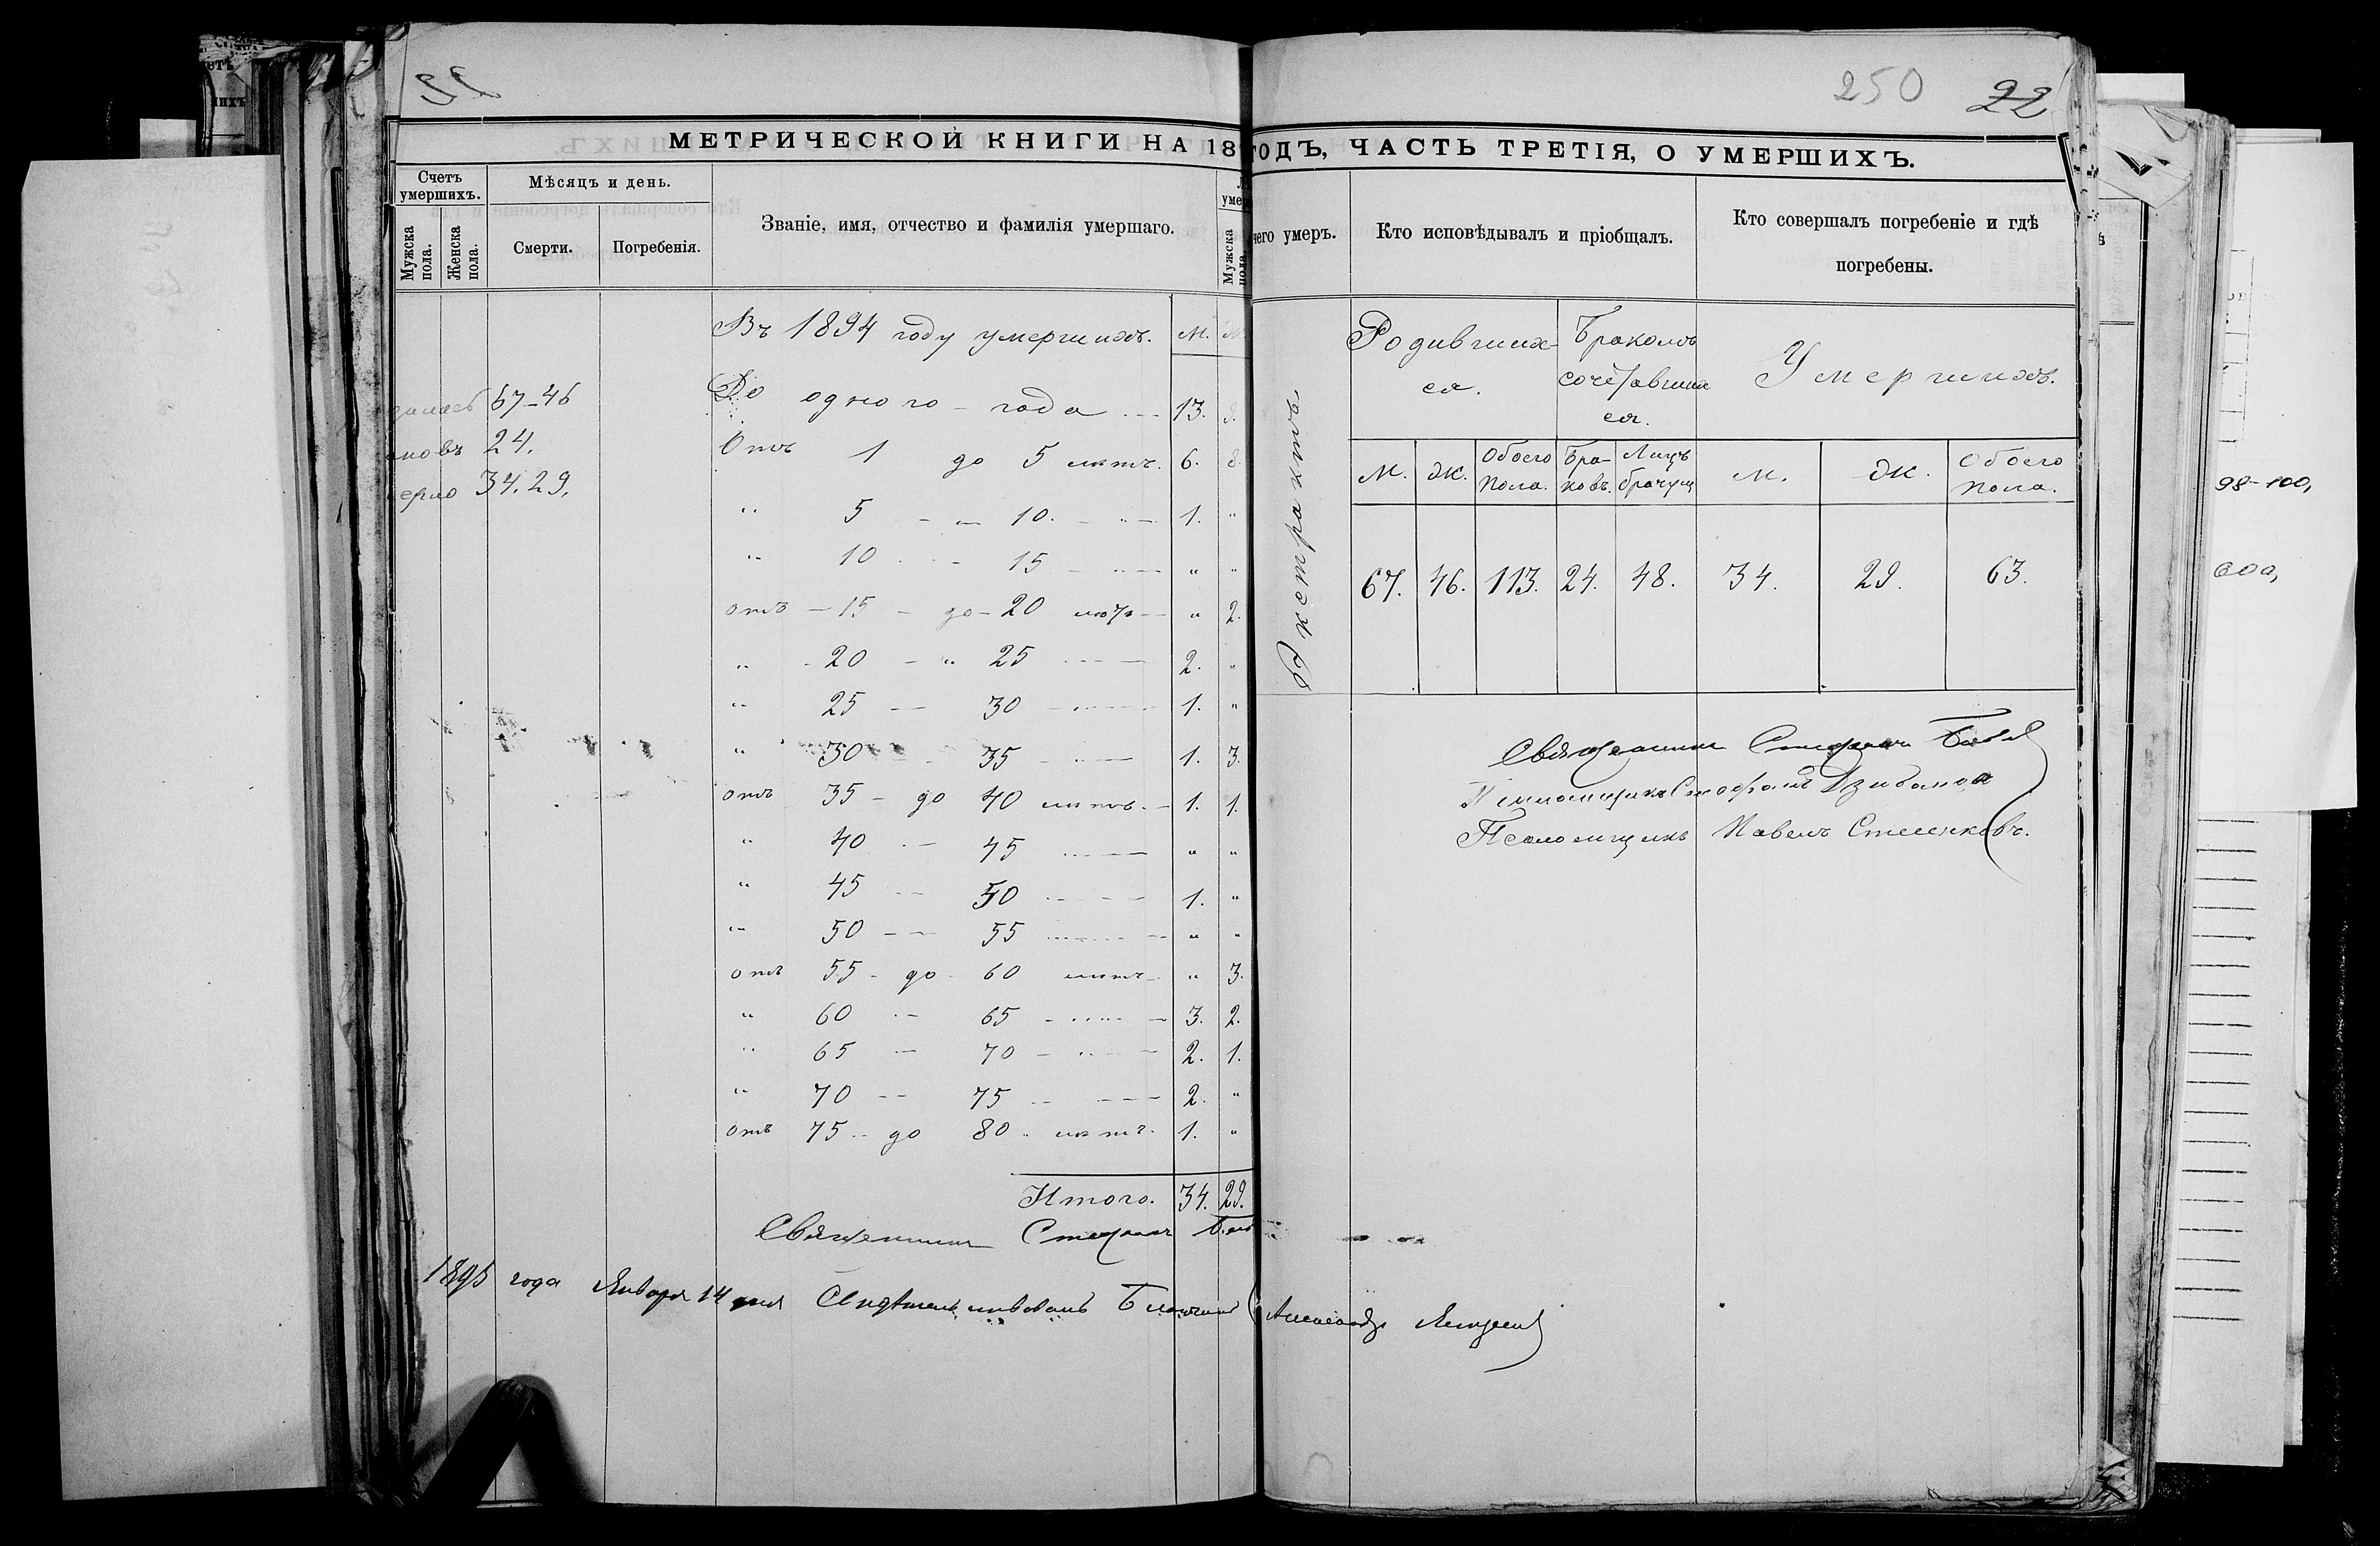 250 22
МЕТРИЧЕСКОЙ КНИГИ НА 18 ГОДЪ, ЧАСТЬ ТРЕТІЯ, О УМЕРШИХЪ.
Счетъ умершихъ.
Мужска пола.
Женска пола.
Мѣсяцъ и день.
Смерти.
Погребенія.
Званіе, имя, отчество и фамилія умершаго.
Мужска пола.
67-46
24.
34. 29.
Въ 1894 году умершихъ. м.
До одного года 13. 9.
Отъ 1 до 5 лѣтъ. 6. 8.
" 5 - 10. - 1. "
" 10 - 15 - " "
отъ - 15 - до - 20 лѣтъ - " 2.
" 20 - " 25 - 2. "
" 25 - 30 - 1. "
" 30 - 35 - 1. 3.
отъ 35 - до 40 лѣтъ. - 1. 1.
" 40 - 45 - " "
" 45 - 50 - 1. "
" 50 - 55 - " "
отъ 55 - до 60 лѣтъ - " 3.
" 60 - 65 - 3. 2.
" 65 - 70 - 2. 1.
" 70 - 75 - 2. "
отъ 75 - до 80 лѣтъ. 1. "
Итого. 34. 29.
Священникъ Стефанъ
1895 года Января 14 дня Свидѣтельствовалъ Благочинный Александръ
чего умеръ.
Кто исповѣдывалъ и пріобщалъ.
Кто совершалъ погребеніе и гдѣ
погребены.
Экстрактъ
Родивших-
ся.
Бракомъ
сочетавших
ся.
Умершихъ.
М. Ж. Обоего пола. Бра-ковъ. Лицъ брачущ М. Ж. Обоего пола.
67. 46. 113. 24. 48. 34. 29. 63.
Священникъ Стефанъ
Псаломщикъ
Псаломщикъ Павелъ
98-100,